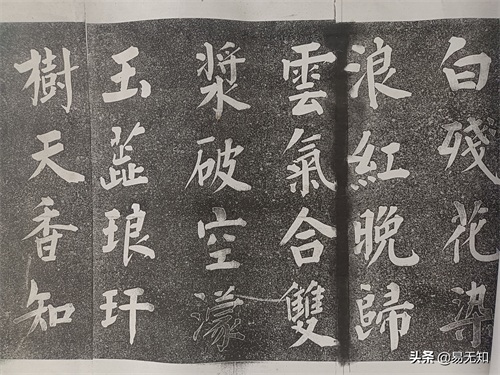 白殘花染
浪紅晚歸
雲氣合雙
槳破空濛
玉蕊琅玕
樹天香知
头条 @易无知